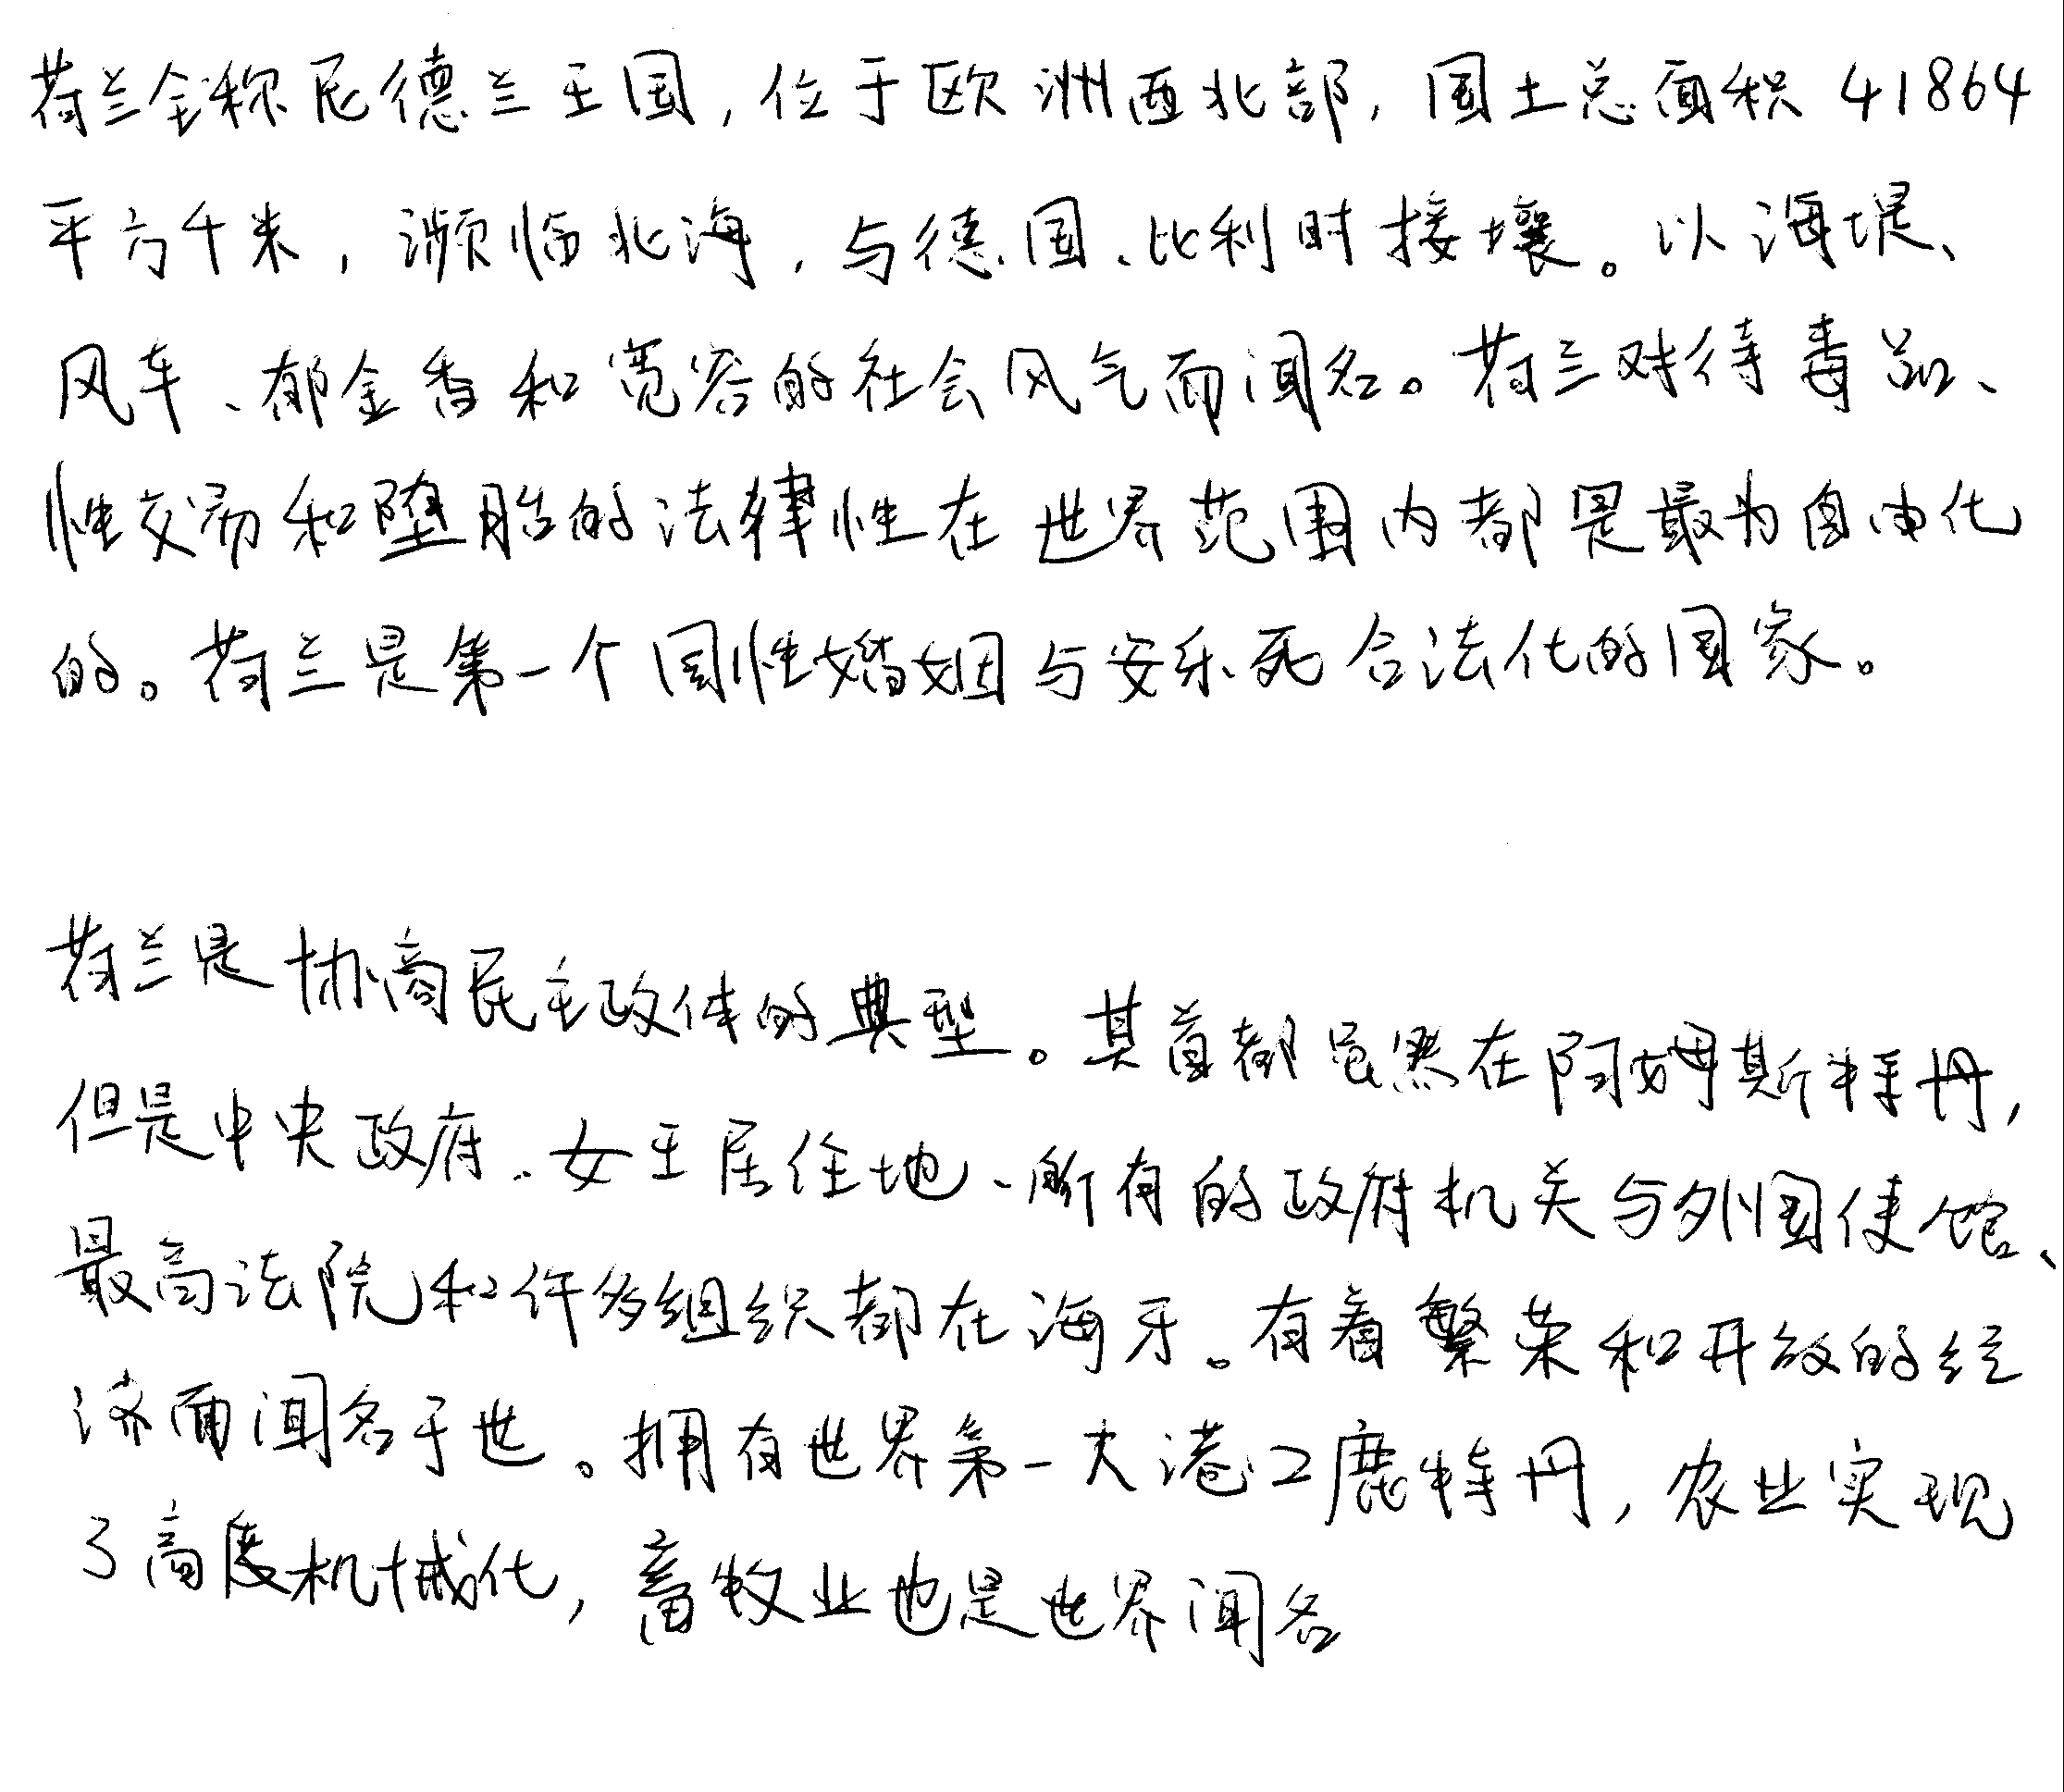 荷兰全称尼德兰王国,位于欧洲西北部,国土总面积41864
平方千米,濒临北海,与德国、比利时接壤。以海堤、
风车、郁金香和宽容的社会风气而闻名。荷兰对待毒品、
性交易和堕胎的法律性在世界范围内都是最为自由化
的。荷兰是第一个同性婚姻与安乐死合法化的国家。
荷兰是协商民主政体的典型。其首都虽然在阿姆斯特丹,
但是中央政府、女王居住地、所有的政府机关与外国使馆、
最高法院和许多组织都在海牙。有着繁荣和开放的经
济而闻名于世。拥有世界第一大港口鹿特丹,农业实现
了高度机械化,畜牧业也是世界闻名